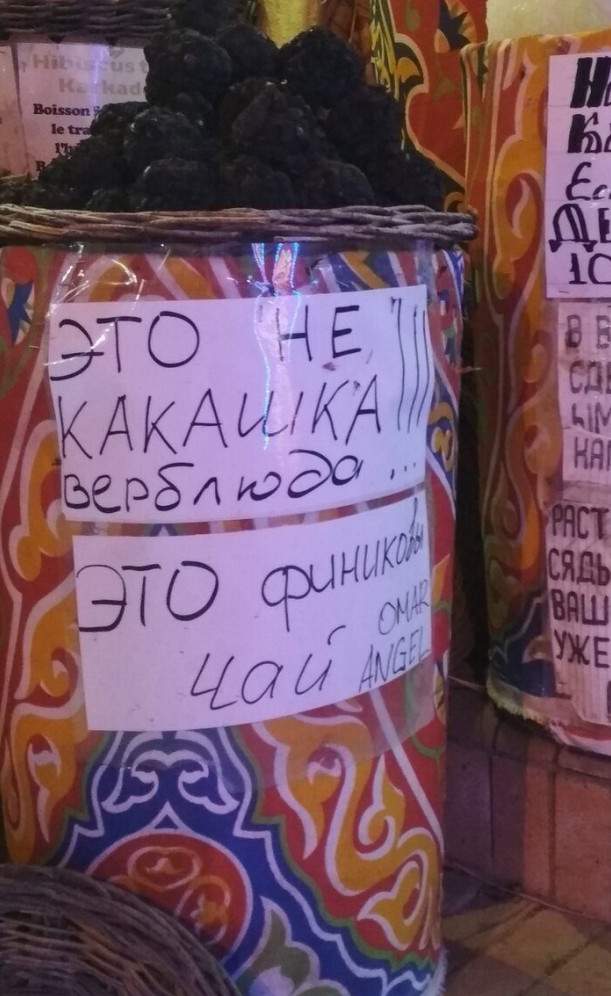 Hibiscus
Karkad
Boisson
le tra
ЭТО НЕ
КАКАШКА !!!
верблюда ...
ЭТО финиковы
чай
OMAR
ANGEL
10
В В
НАП
РАСТ
СЯДЬ
ВАШ
УЖЕ